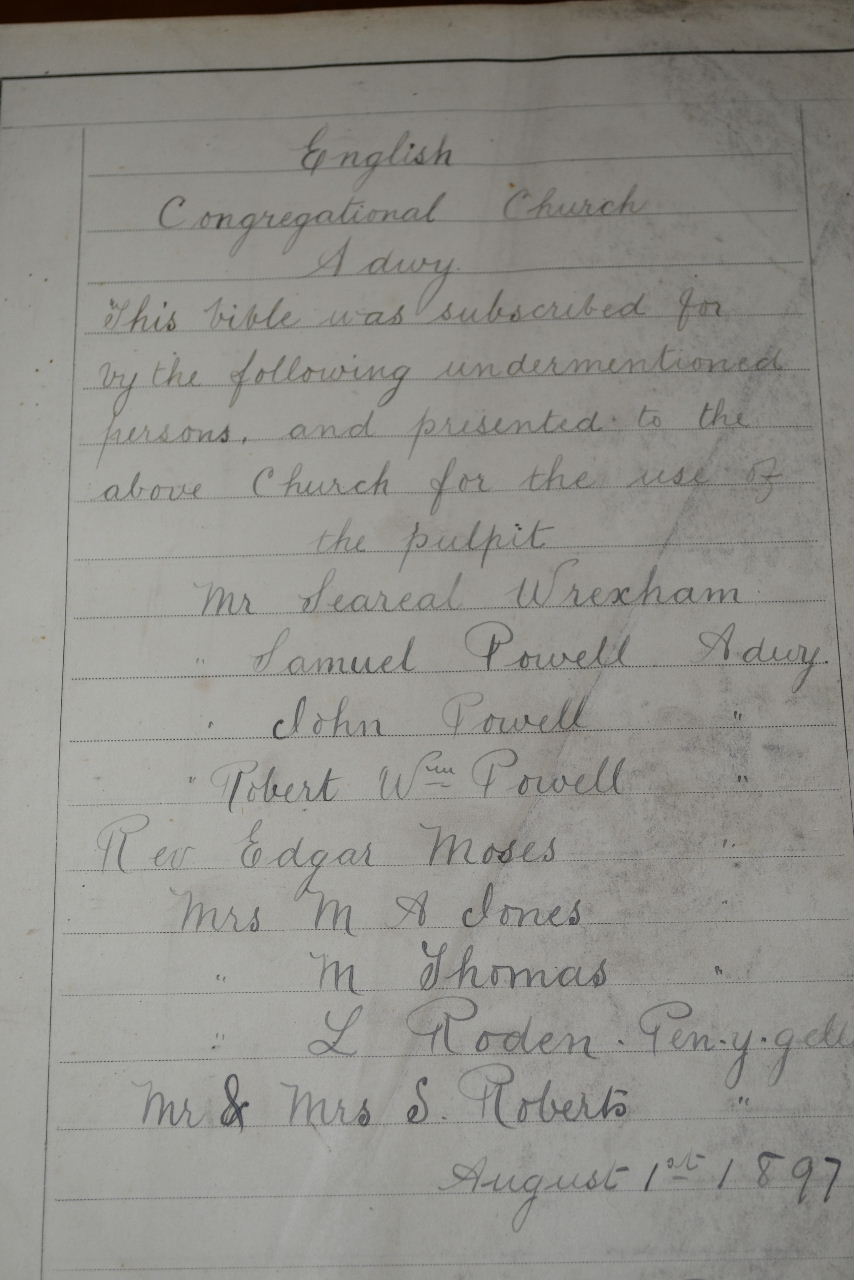 English
Congregational Church
Adwy.
This bible was subscribed for
by the following undermentioned
persons, and presented to the
above Church for the use of
the pulpit
Mr Seareal Wrexham
" Samuel Powell Adwy.
" John Powell "
" Robert Wm Powell "
Rev Edgar Moses "
Mrs M A Jones "
" M Thomas "
" L Roden. Pen-y-gell
Mr & Mrs S. Roberts "
August 1st 1897